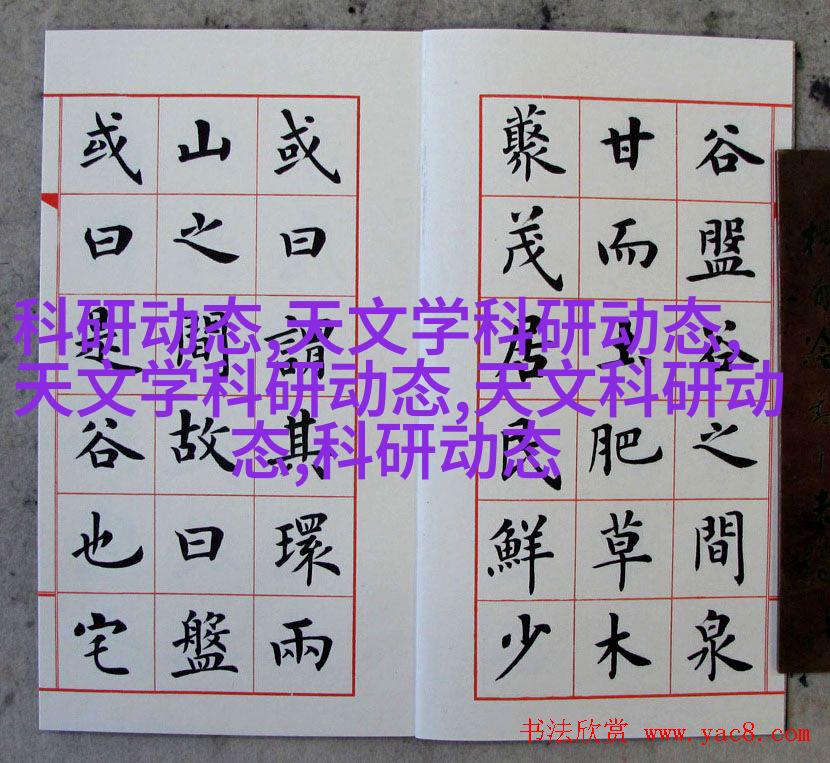 谷盤谷之間泉
甘而土肥草木
藂茂居民鮮少
或曰謂其環兩
山之間故曰盤
或曰是谷也宅
科研动态,天文学科研动态,
天文学科研动态,天文科研动
态,科研动态
书法欣赏 www.yac8.com